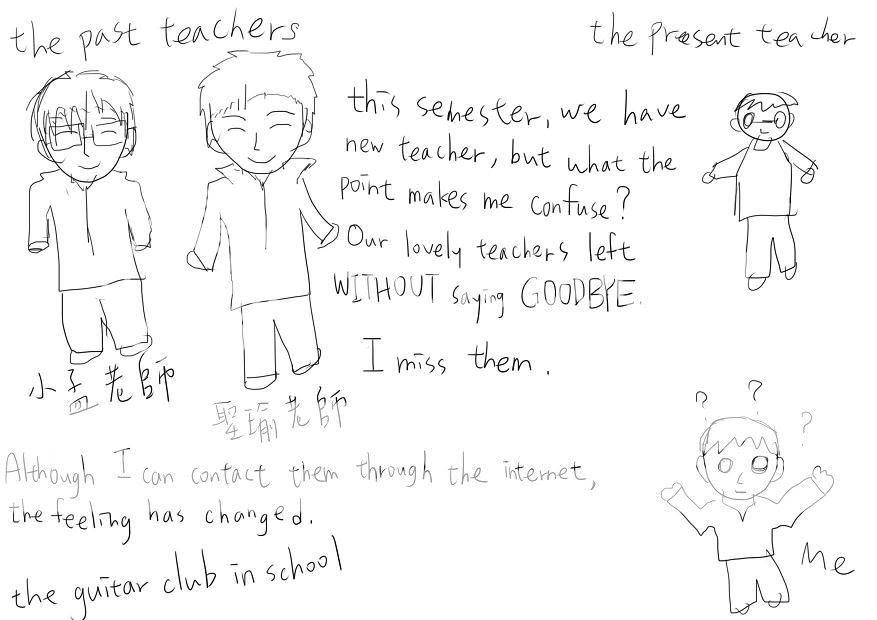 the past teachers
the present teacher
this semester, we have
new teacher, but what the
point makes me confuse?
Our lovely teachers left
WITHOUT saying GOODBYE.
I miss them.
小孟老師
聖瑜老師
Although I can contact them through the internet,
the feeling has changed.
the guitar club in school
? ? ?
Me